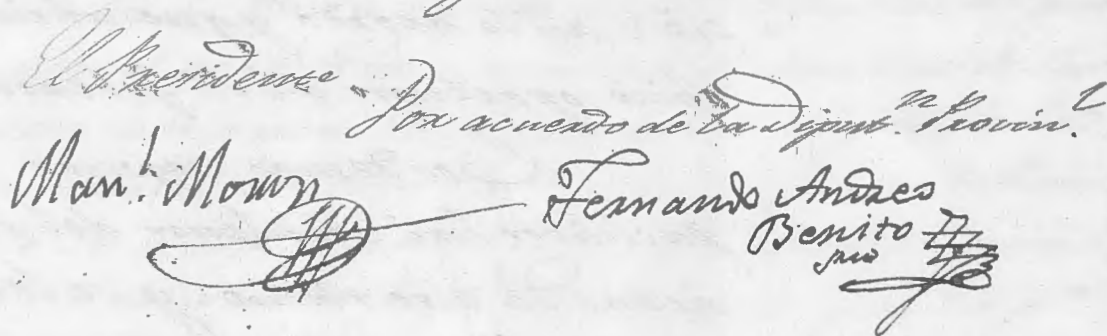 El Presidente
Por acuerdo de la Diput.ⁿ Provin.ˡ
Man.ˡ Moran
Fernando Andres
Benito
srio